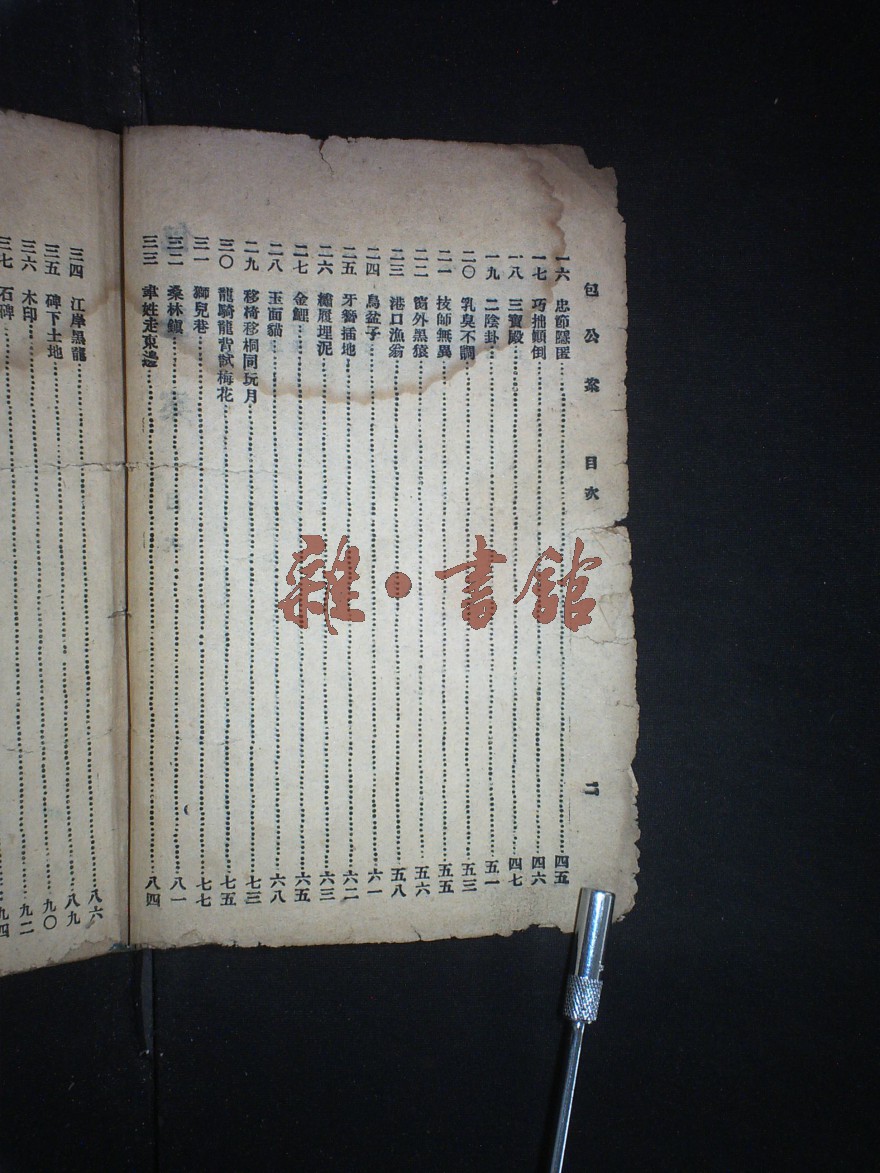 包公案 目次 二
一六 忠節隱匿 四五
一七 巧拙顛倒 四六
一八 三寶殿 四七
一九 二陰卦 五一
二〇 乳臭不調 五三
二一 技師無異 五五
二二 窗外黑猿 五六
二三 港口漁翁 五八
二四 烏盆子 六一
二五 牙簪插地 六二
二六 繡履埋泥 六三
二七 金鯉 六五
二八 玉面貓 六八
二九 移椅移桐同玩月 七三
三〇 龍騎龍背試梅花 七五
三一 獅兒巷 七七
三二 桑林鎮 八一
三三 姓走東邊 八四
三四 江岸黑龍 八六
三五 碑下土地 八九
三六 木印 九〇
三七 石碑 九二
九四
雜·書館